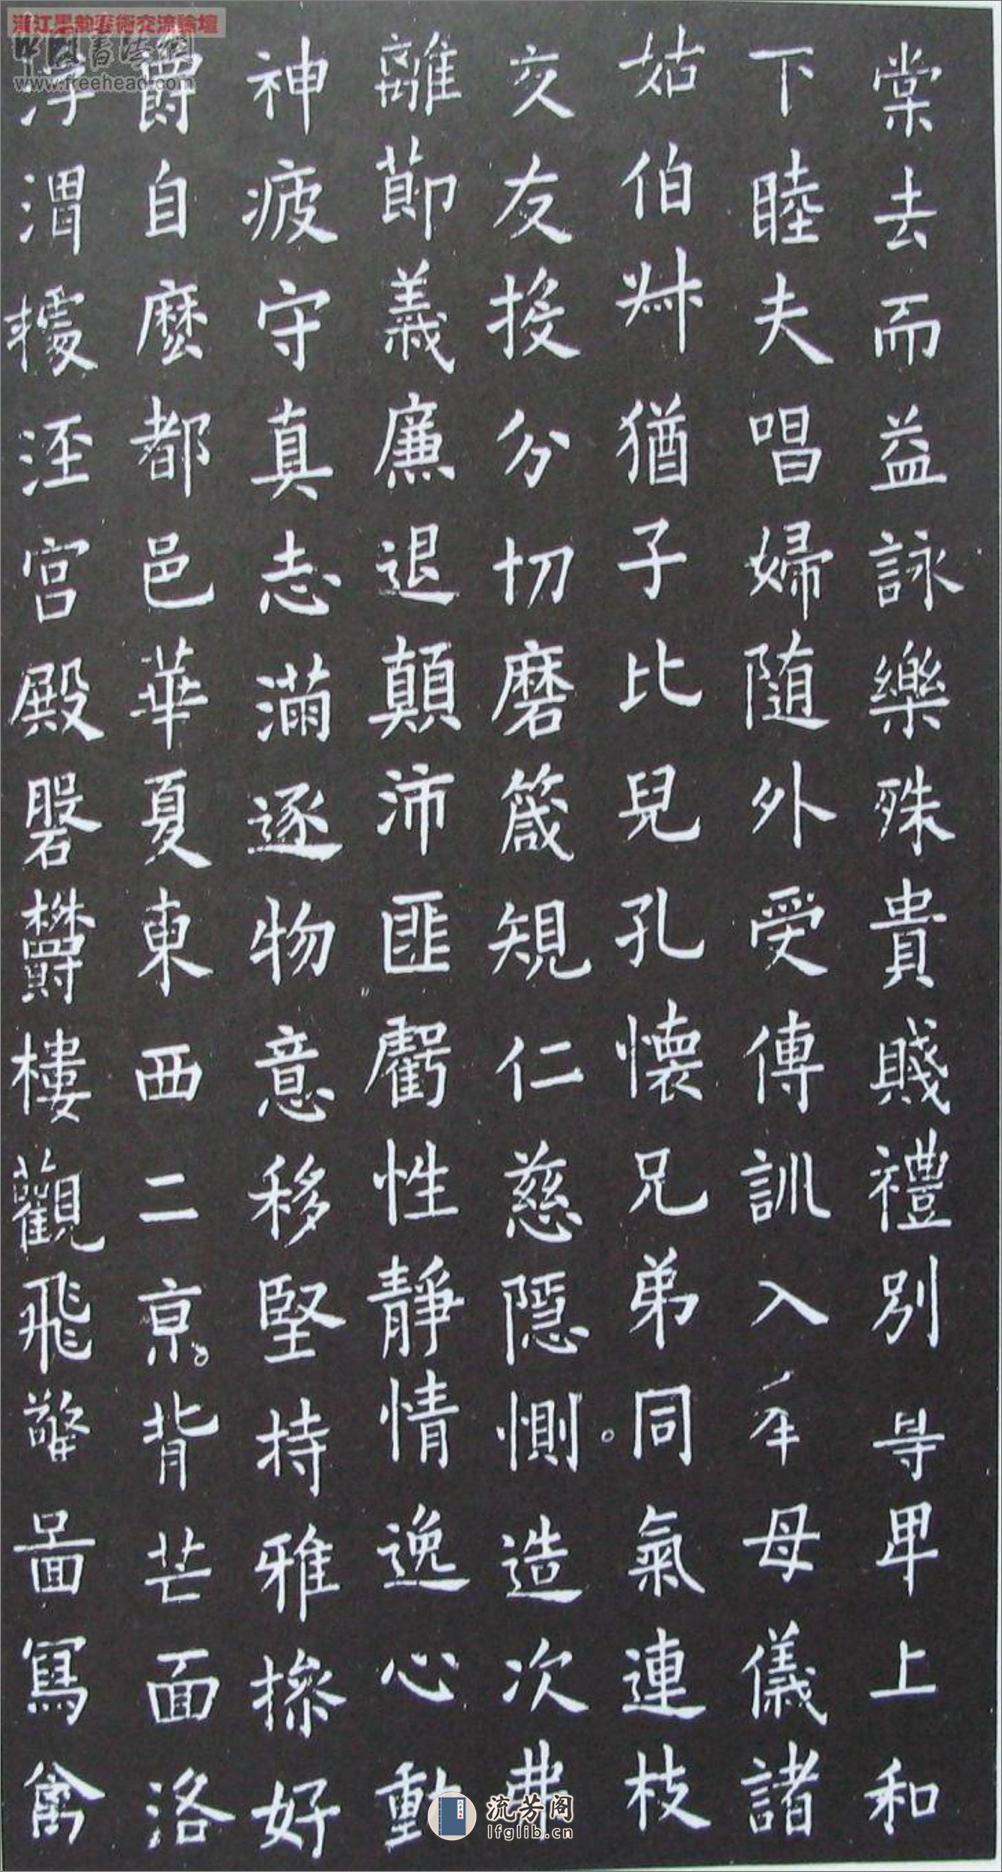 棠去而益詠樂殊貴賤禮別尊卑上和
下睦夫唱婦隨外受傅訓入奉母儀諸
姑伯叔猶子比兒孔懷兄弟同氣連枝
交友投分切磨箴規仁慈隱惻造次弗
離節義廉退顛沛匪虧性靜情逸心動
神疲守真志滿逐物意移堅持雅操好
爵自縻都邑華夏東西二京背芒面洛
浮渭據涇宮殿磐鬱樓觀飛驚圖寫禽
浙江墨韵藝術交流論壇
中國書法網
www.freehead.com
流芳阁
lfglib.cn